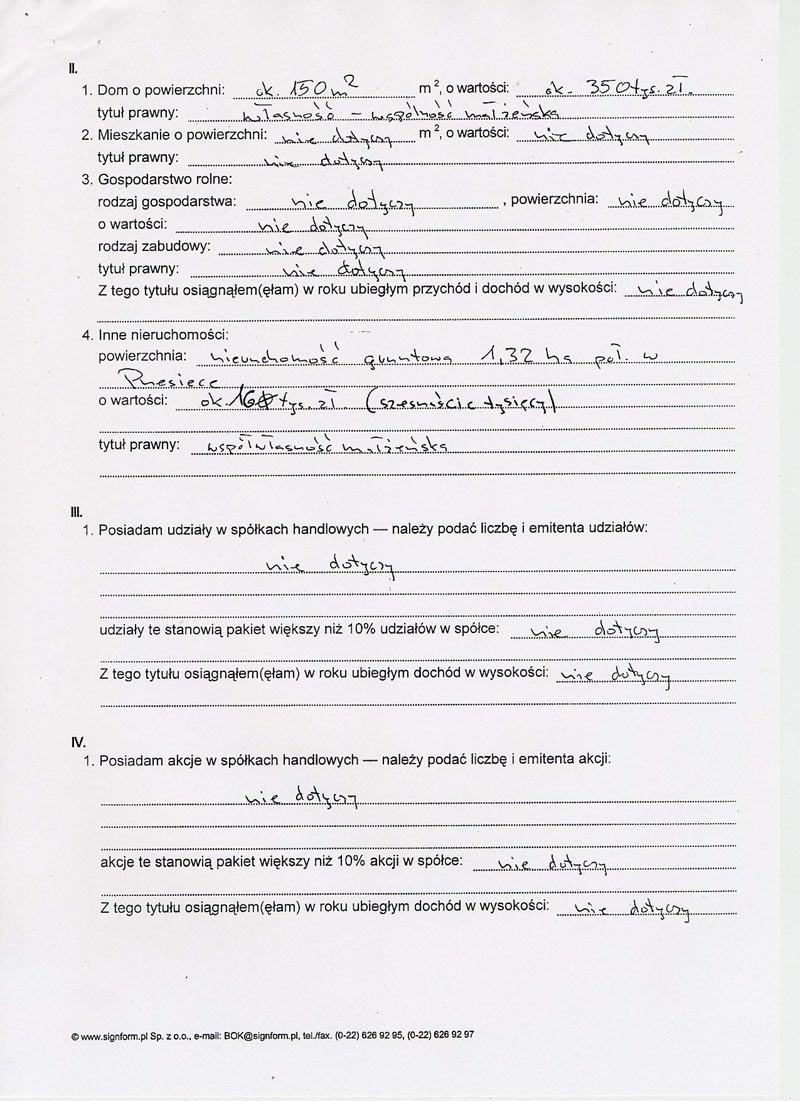 II.
1. Dom o powierzchni: ok. 150 m² m², o wartości: ok. 350 tys. zł.
tytuł prawny: własność – wspólność małżeńska
2. Mieszkanie o powierzchni: nie dotyczy m², o wartości: nie dotyczy
tytuł prawny: nie dotyczy
3. Gospodarstwo rolne:
rodzaj gospodarstwa: nie dotyczy, powierzchnia: nie dotyczy
o wartości: nie dotyczy
rodzaj zabudowy: nie dotyczy
tytuł prawny: nie dotyczy
Z tego tytułu osiągnąłem(ęłam) w roku ubiegłym przychód i dochód w wysokości: nie dotyczy
4. Inne nieruchomości:
powierzchnia: nieruchomość gruntowa 1,32 ha poł. w
Przesiece
o wartości: ok. 16 tys. zł. (szesnaście tysięcy)
tytuł prawny: współwłasność małżeńska
III.
1. Posiadam udziały w spółkach handlowych — należy podać liczbę i emitenta udziałów:
nie dotyczy
udziały te stanowią pakiet większy niż 10% udziałów w spółce: nie dotyczy
Z tego tytułu osiągnąłem(ęłam) w roku ubiegłym dochód w wysokości: nie dotyczy
IV.
1. Posiadam akcje w spółkach handlowych — należy podać liczbę i emitenta akcji:
nie dotyczy
akcje te stanowią pakiet większy niż 10% akcji w spółce: nie dotyczy
Z tego tytułu osiągnąłem(ęłam) w roku ubiegłym dochód w wysokości: nie dotyczy
© www.signform.pl Sp. z o.o., e-mail: BOK@signform.pl, tel./fax. (0-22) 626 92 95, (0-22) 626 92 97